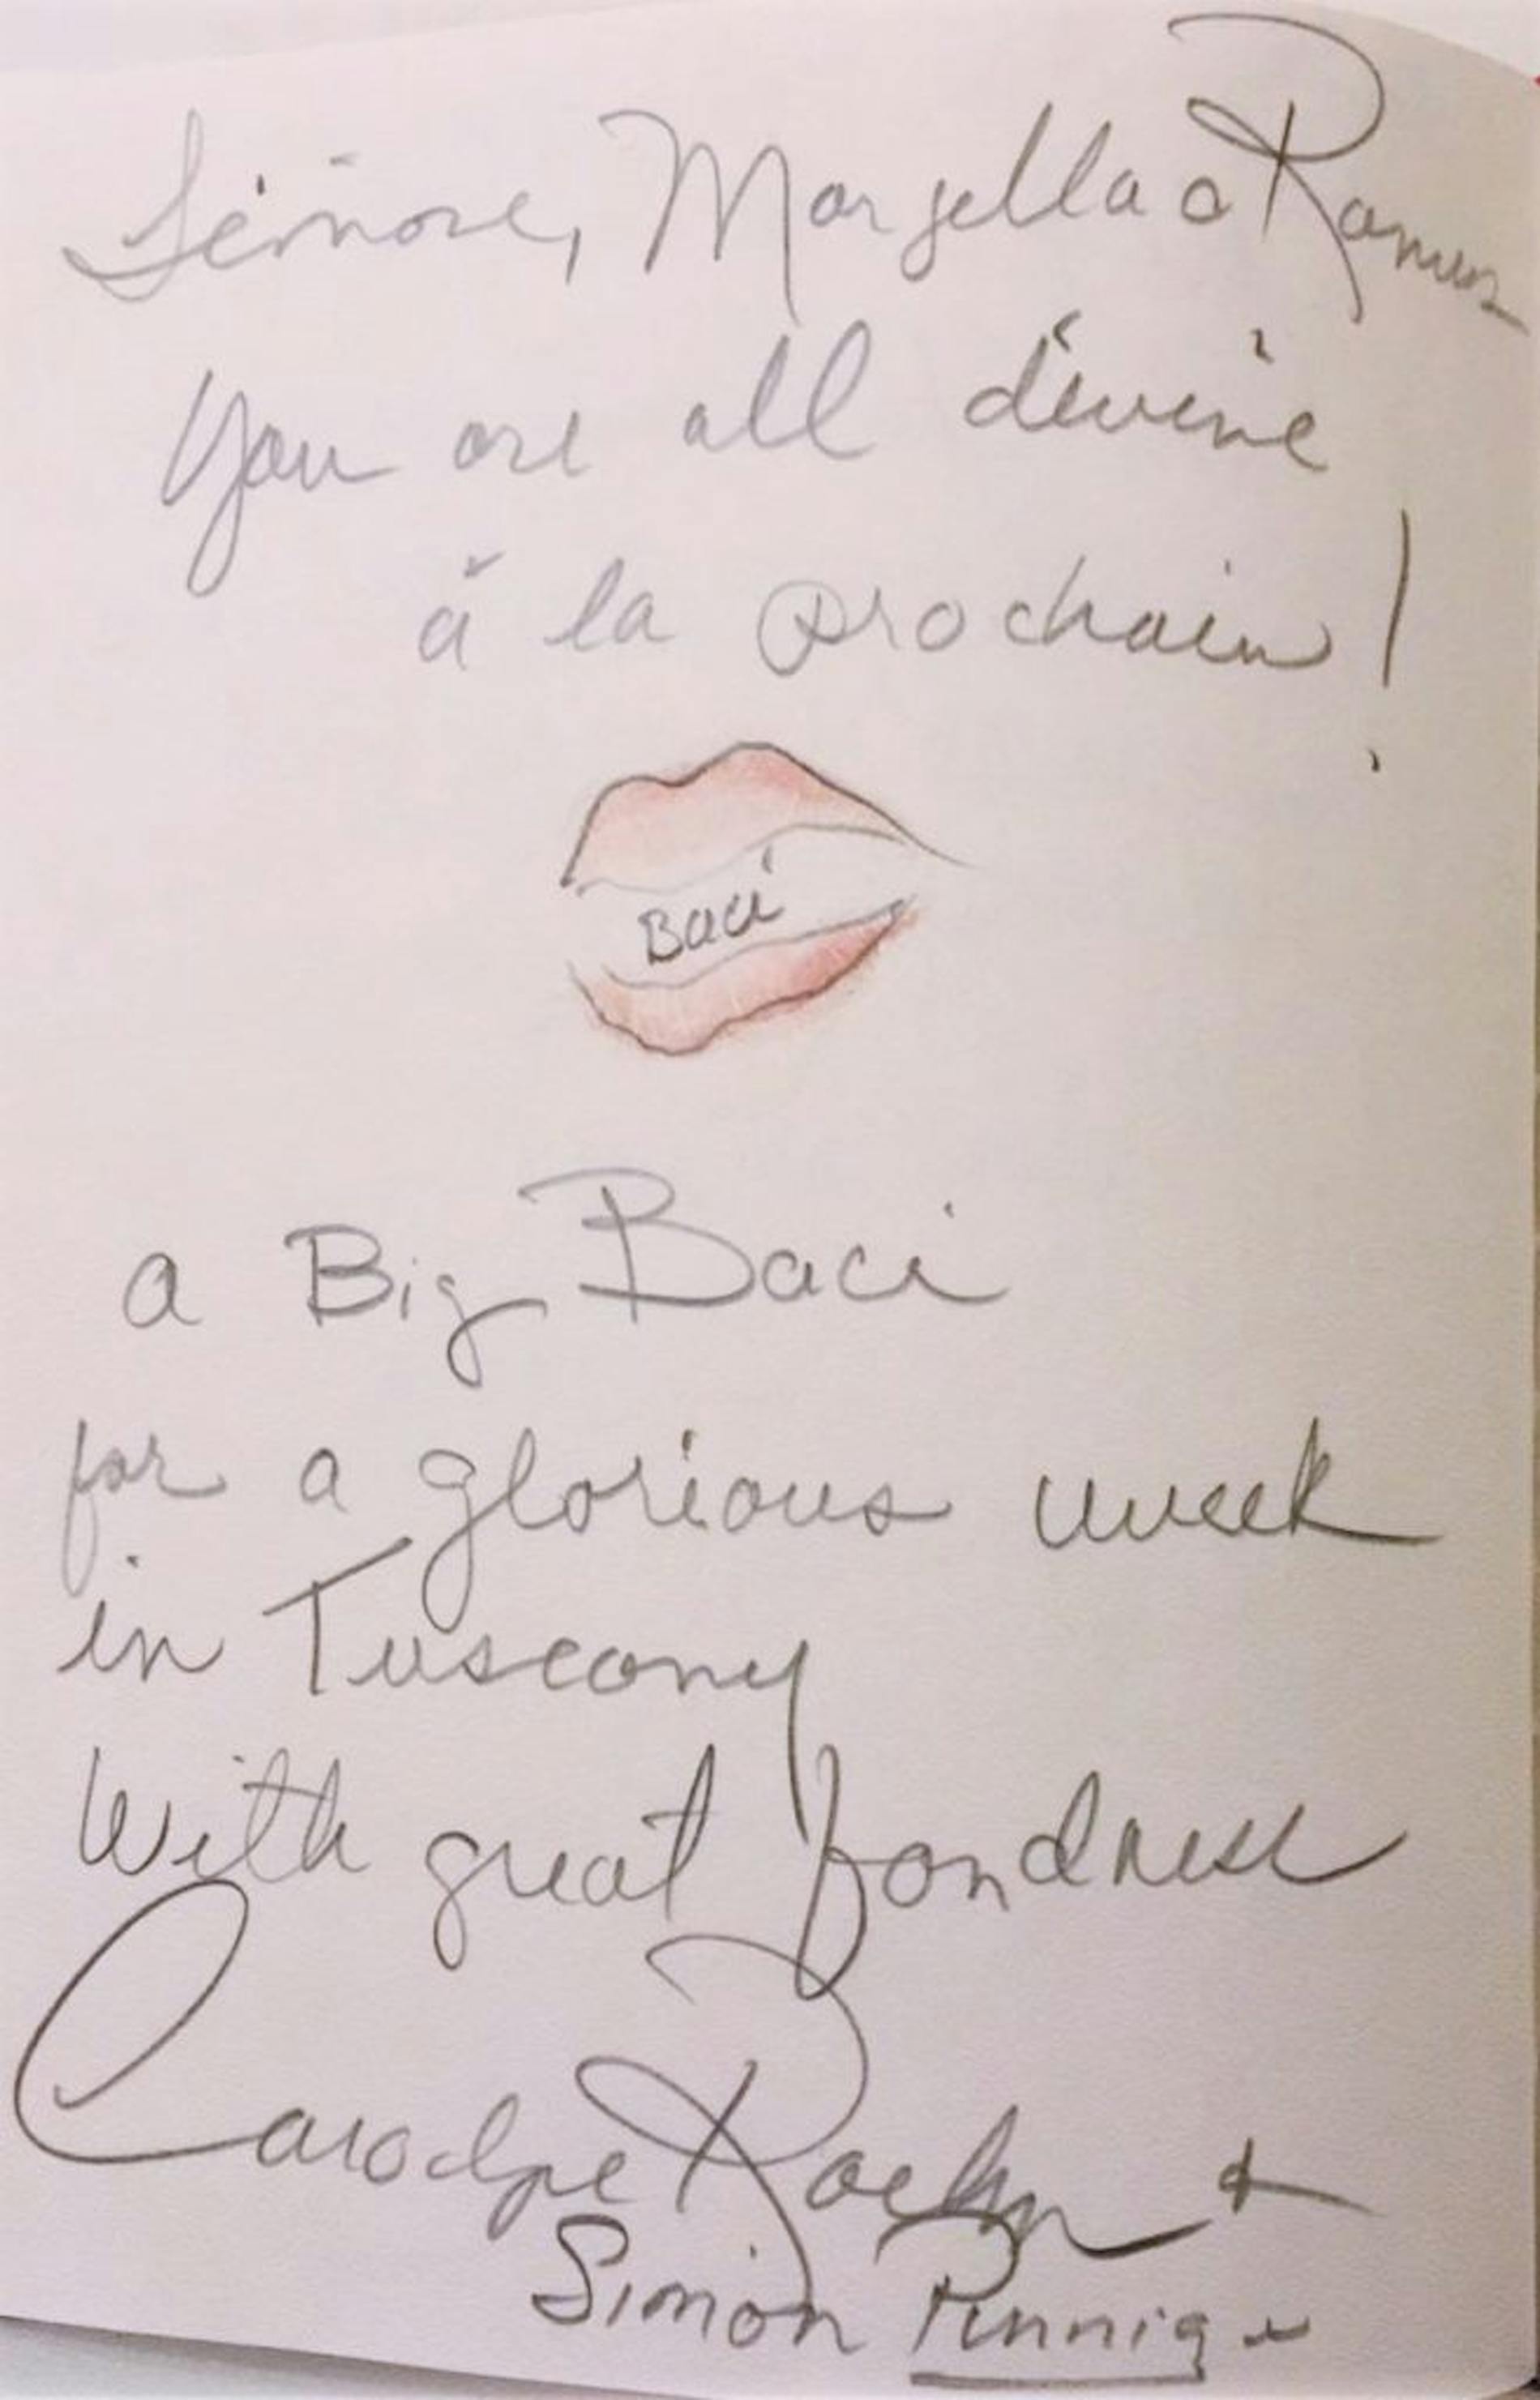 Simone, Margella & Ramus
You are all divine
à la prochain!
Baci
a Big Baci
for a glorious week
in Tuscany
With great fondness
Carolyne Roehm +
Simon Pinniger